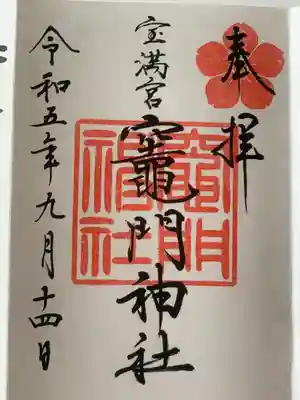 奉拝
宝満宮
竈門神社
令和五年九月十四日
竈門
神社